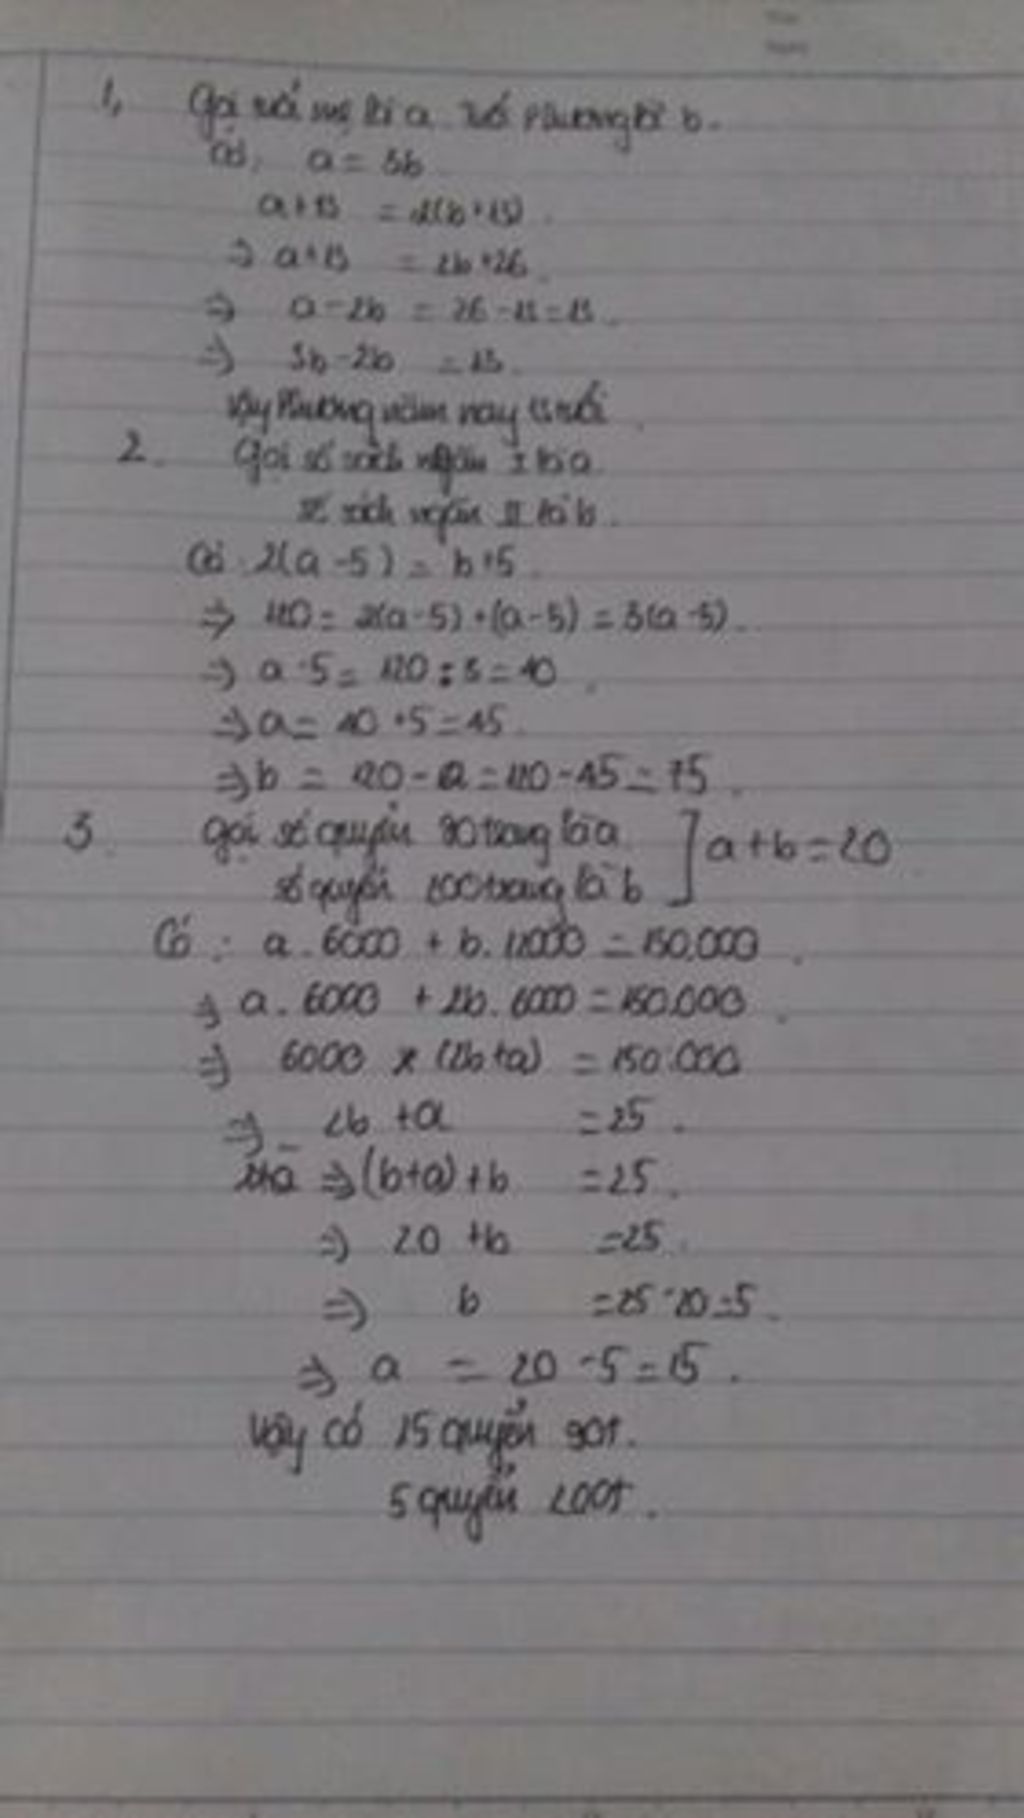 1, Gọi tuổi mẹ là a tuổi Phương là b.
Có, a = 3b
a+13 = 2(b+13).
=> a+13 = 2b+26.
=> a-2b = 26-13=13.
=> 3b-2b = 13.
Vậy Phương năm nay 13 tuổi.
2. Gọi số sách ngăn I là a
số sách ngăn II là b.
Có 2(a-5) = b+5.
=> 120 = 2(a-5)+(a-5) = 3(a-5).
=> a-5 = 120:3=40.
=> a = 40+5=45.
=> b = 120-a=120-45=75.
3. Gọi số quyển 90 trang là a ] a+b=20
số quyển 200 trang là b
Có: a.6000 + b.12000 = 150.000.
=> a.6000 + 2b.6000 = 150.000.
=> 6000 x (2b+a) = 150.000
=> 2b +a = 25.
=> (b+a)+b = 25.
=> 20 +b =25.
=> b =25-20=5.
=> a = 20-5=15.
Vậy có 15 quyển 90t.
5 quyển 200t.